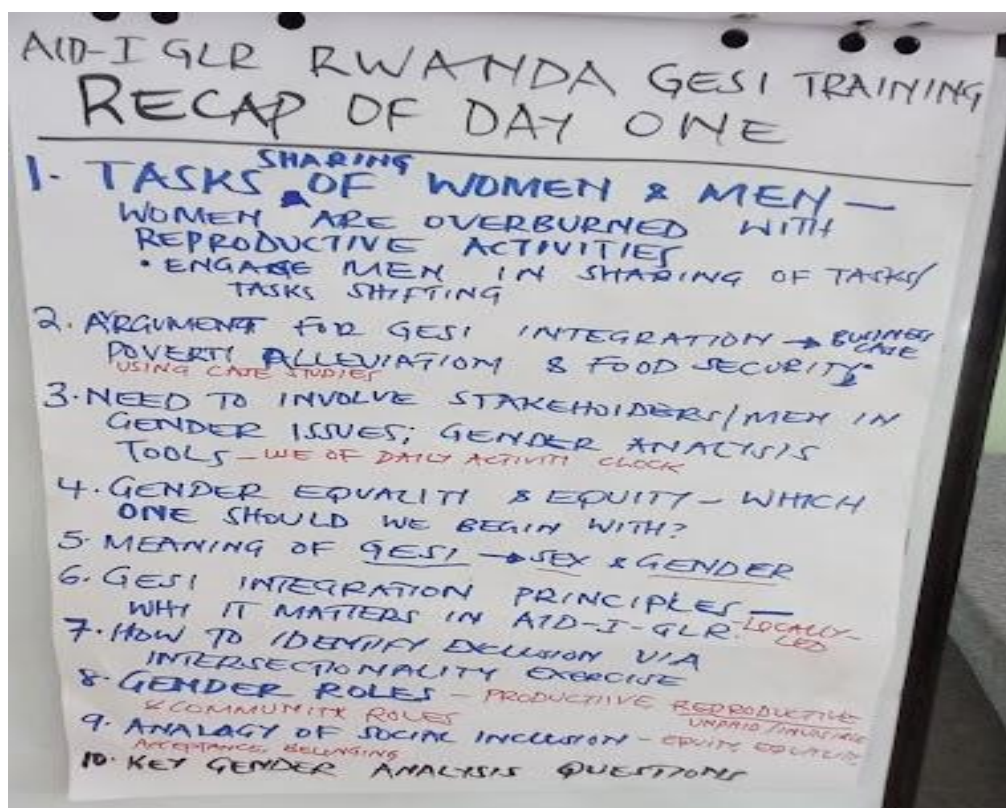 AID-I GLR RWANDA GESI TRAINING
RECAP OF DAY ONE
1. TASKS SHARING OF WOMEN & MEN —
WOMEN ARE OVERBURNED WITH
REPRODUCTIVE ACTIVITIES
• ENGAGE MEN IN SHARING OF TASKS/
TASKS SHIFTING
2. ARGUMENT FOR GESI INTEGRATION → BUSINESS CASE
POVERTY ALLEVIATION & FOOD SECURITY
USING CASE STUDIES
3. NEED TO INVOLVE STAKEHOLDERS/MEN IN
GENDER ISSUES; GENDER ANALYSIS
TOOLS – USE OF DAILY ACTIVITY CLOCK
4. GENDER EQUALITY & EQUITY – WHICH
ONE SHOULD WE BEGIN WITH?
5. MEANING OF GESI → SEX & GENDER
6. GESI INTEGRATION PRINCIPLES —
WHY IT MATTERS IN AID-I-GLR. LOCALLY-LED
7. HOW TO IDENTIFY EXCLUSION VIA
INTERSECTIONALITY EXERCISE
8. GENDER ROLES – PRODUCTIVE REPRODUCTIVE
& COMMUNITY ROLES UNPAID/INVISIBLE
9. ANALAGY OF SOCIAL INCLUSION – EQUITY EQUALITY
ACCEPTANCE, BELONGING
10. KEY GENDER ANALYSIS QUESTIONS